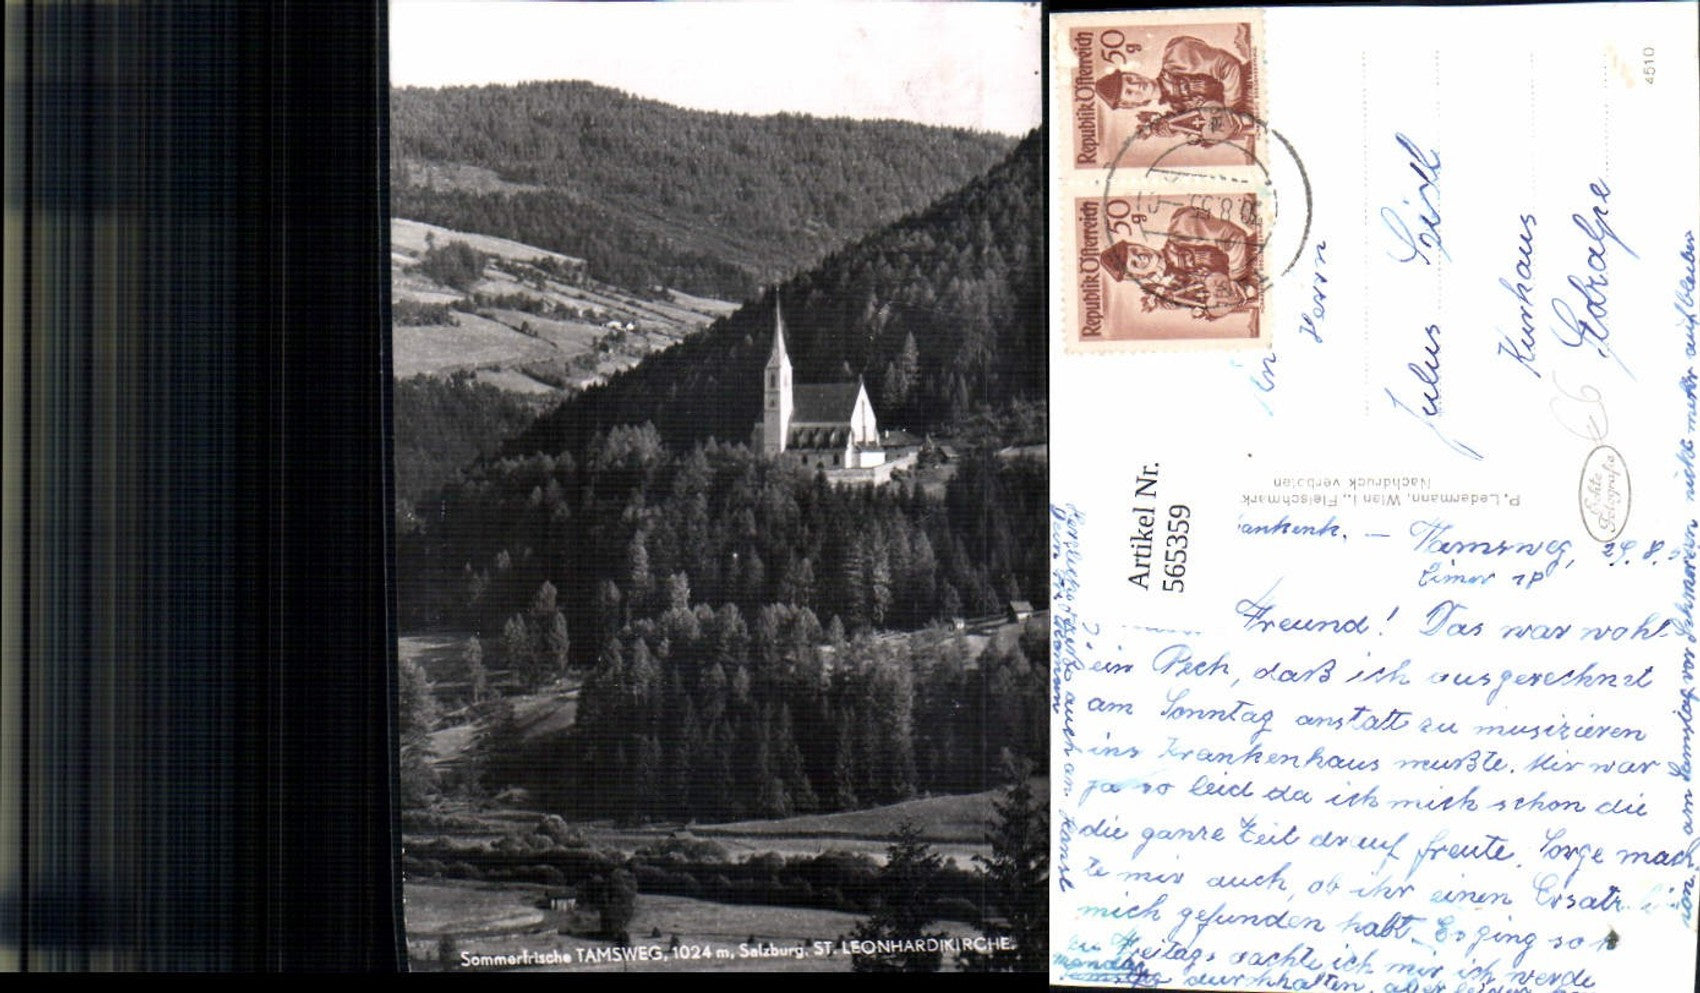 Sommerfrische TAMSWEG, 1024 m, Salzburg. ST. LEONHARDIKIRCHE.
Republik Österreich
50 g
Republik Österreich
50 g
4510
Herrn
Julius
Kurhaus
P. Ledermann, Wien I., Fleischmark
Nachdruck verboten
Echte Fotografie
Artikel Nr.
565359
ankenh. — Tamsweg, 29.8.5
Freund! Das war wohl
ein Pech, daß ich ausgerechnet
am Sonntag anstatt zu musizieren
ins Krankenhaus mußte. Mir war
ja so leid da ich mich schon die
die ganze Zeit drauf freute. Sorge mach
te mir auch, ob ihr einen Ersatz für
mich gefunden habt. Es ging so
Freitags dachte ich mir ich werde
durchhalten, aber leider
am Samstag vor Schmerzen nicht mehr aufbleiben
Herzliche Grüße auch an Hansl